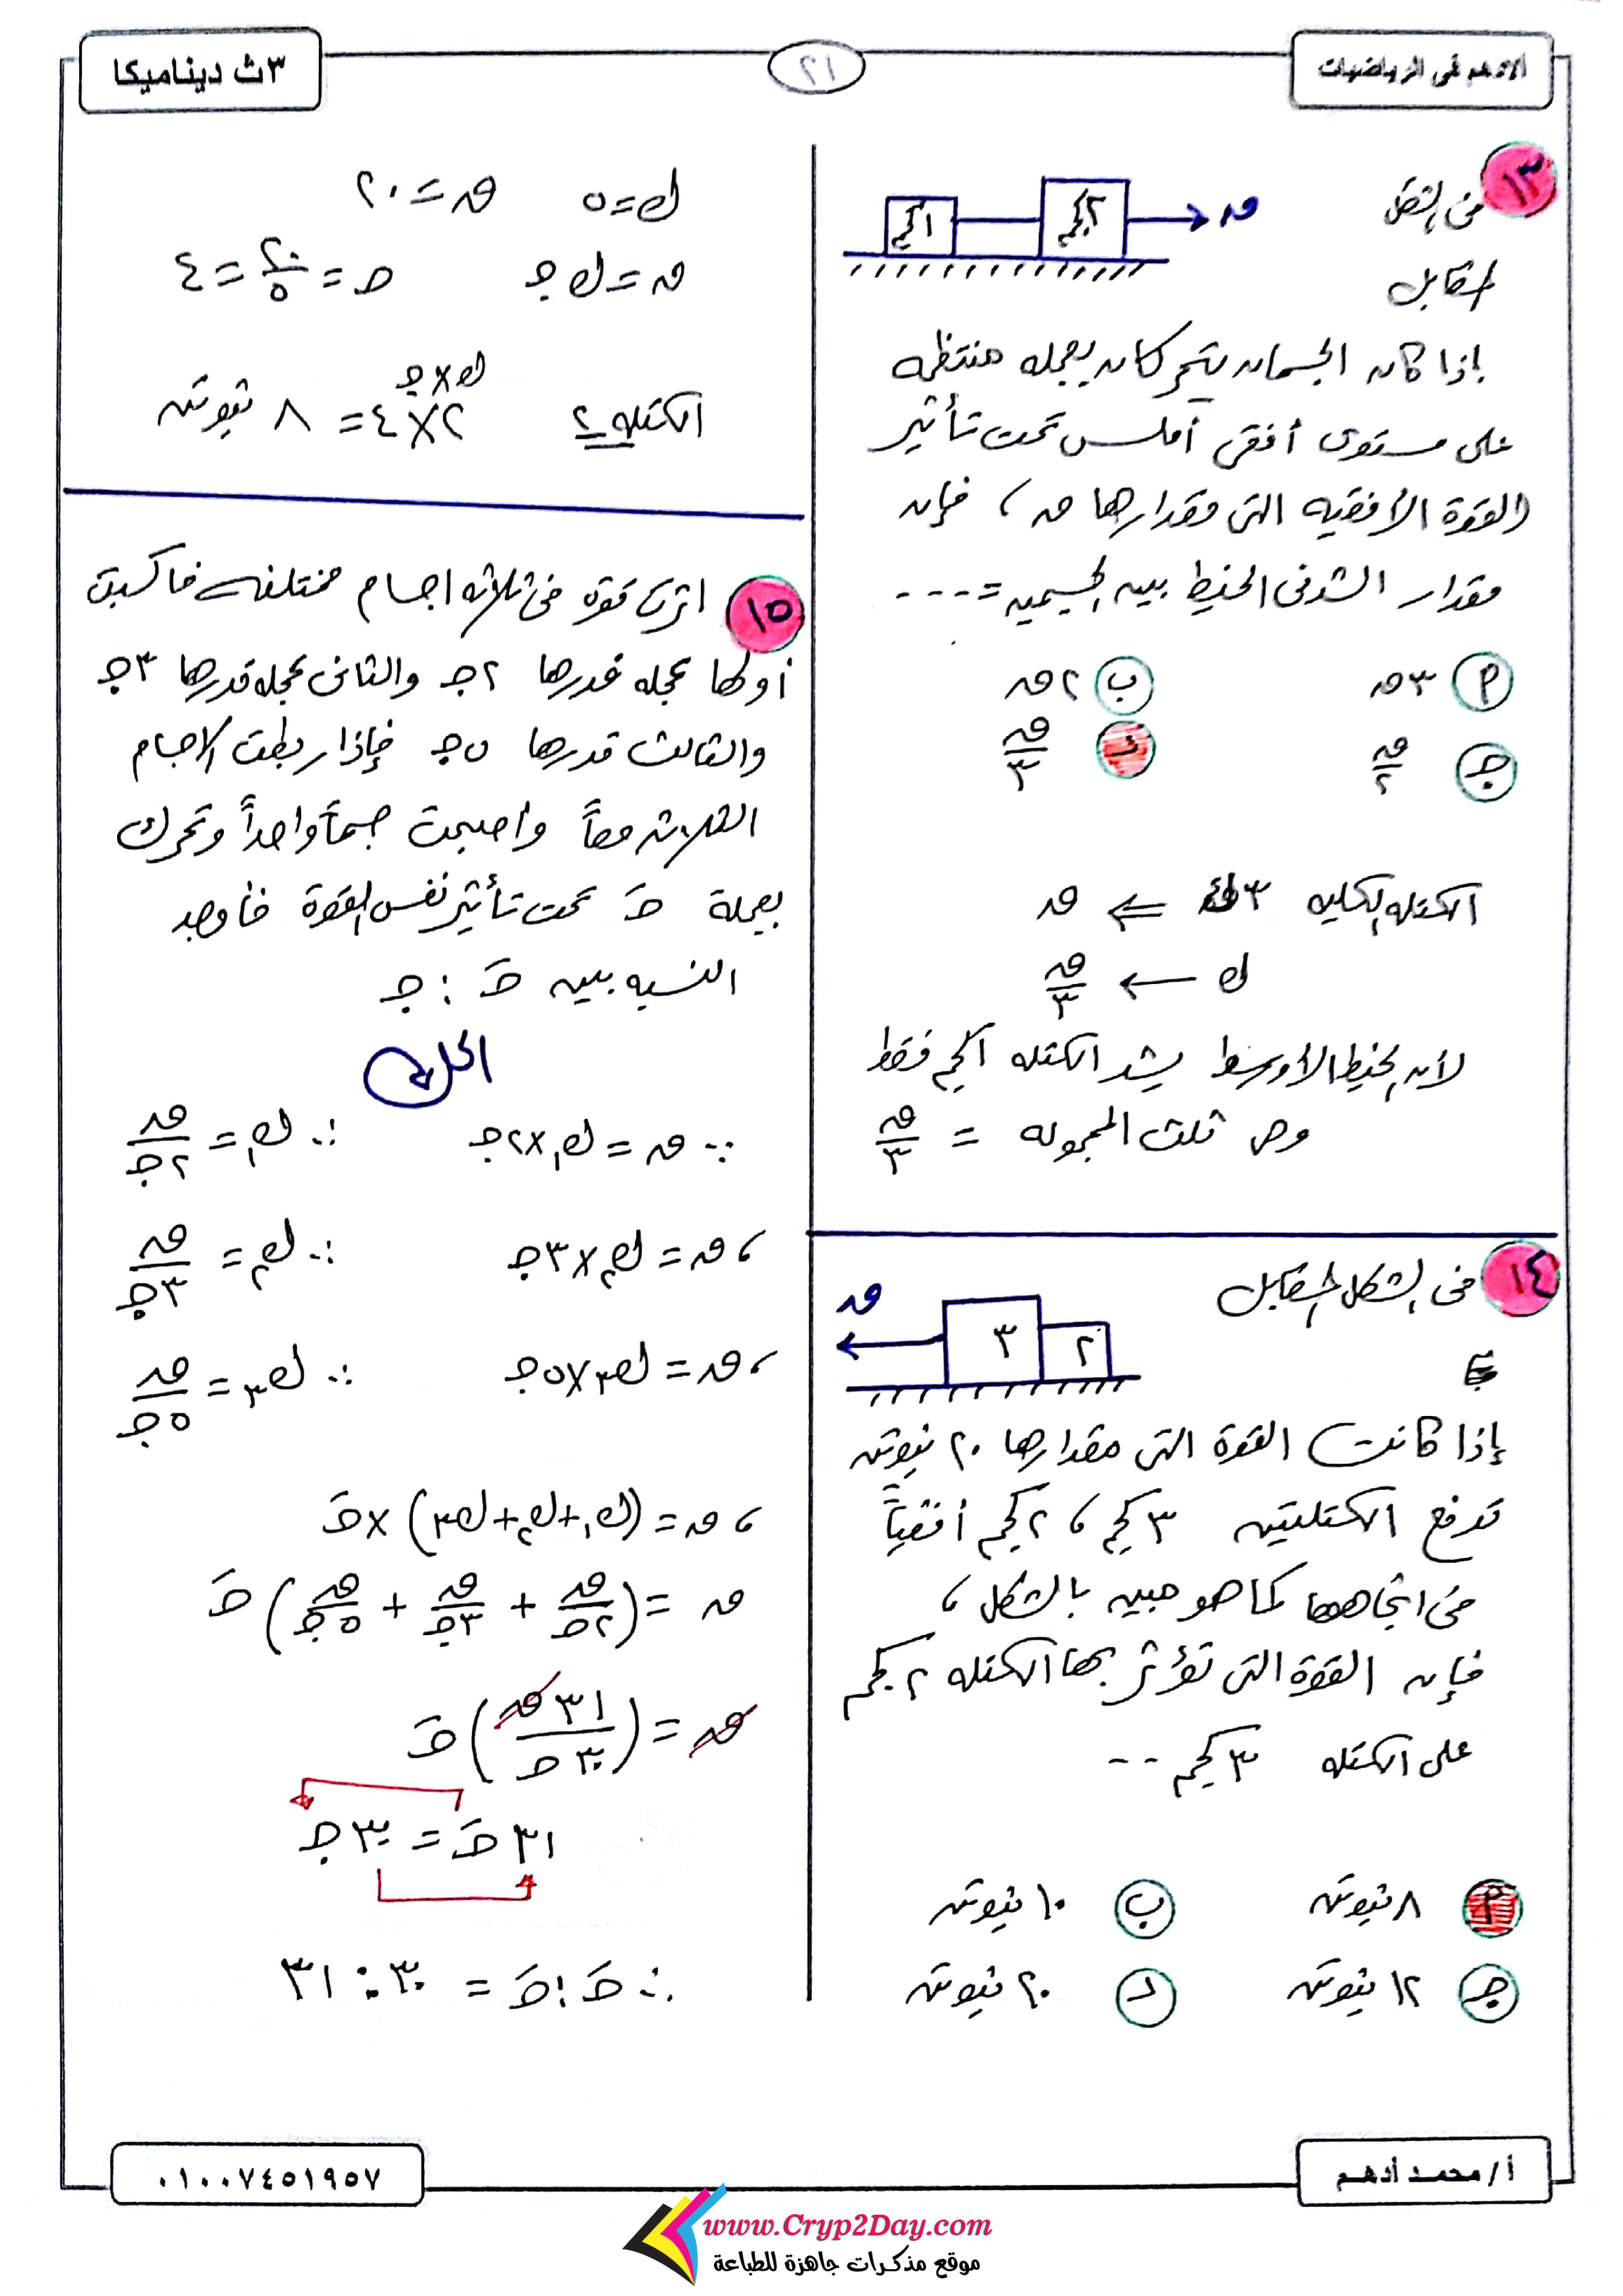 الأدهم في الرياضيات
٢١
٣ث ديناميكا
١٣ في الشكل
المقابل
١كجم ٢كجم ق
إذا كان الجسمان يتحركان بعجله منتظمه
على مستوى أفقى أملس تحت تأثير
القوة الأفقيه التى مقدارها ق ، فإن
مقدار الشد فى الخيط بين الجسمين = ---
أ ٣ق ب ٢ق
ج ق/٢ د ق/٣
الكتله الكليه ٣ك ⇐ ق
ك ← ق/٣
لأن الخيط الأوسط يشد الكتله ١كجم فقط
وهى ثلث المجموعه = ق/٣
١٤ فى الشكل المقابل
ق ٣ ٢
إذا كانت القوة التى مقدارها ٢٠ نيوتن
تدفع الكتلتين ٣كجم ، ٢كجم أفقياً
فى اتجاهها كما هو مبين بالشكل ،
فإن القوة التى تؤثر بها الكتله ٢كجم
على الكتله ٣كجم --
أ ٨ نيوتن ب ١٠ نيوتن
ج ١٢ نيوتن د ٢٠ نيوتن
ك = ٥ ق = ٢٠
ق = ك ج ج = ٢٠/٥ = ٤
ك×ج
الكتله ٢ ٢×٤ = ٨ نيوتن
١٥ اثرت قوة فى ثلاثه اجسام مختلفه فاكسبت
أولها عجله قدرها ٢ج والثانى عجله قدرها ٣ج
والثالث قدرها ٥ج فإذا ربطت الاجسام
الثلاثه معاً واصبحت جسماً واحداً وتحرك
بعجلة جَ تحت تأثير نفس القوة فأوجد
النسبه بين جَ : ج
الحل
∵ ق = ك١×٢ج ∴ ك١ = ق/٢ج
، ق = ك٢×٣ج ∴ ك٢ = ق/٣ج
، ق = ك٣×٥ج ∴ ك٣ = ق/٥ج
، ق = (ك١+ك٢+ك٣)×جَ
ق = (ق/٢ج + ق/٣ج + ق/٥ج) جَ
ق = (٣١ق/٣٠ج) جَ
٣١ جَ = ٣٠ ج
∴ جَ : جَ = ٣٠ : ٣١
أ/ محمد أدهم
٠١٠٠٧٤٥١٩٥٧
www.Cryp2Day.com
موقع مذكرات جاهزة للطباعة